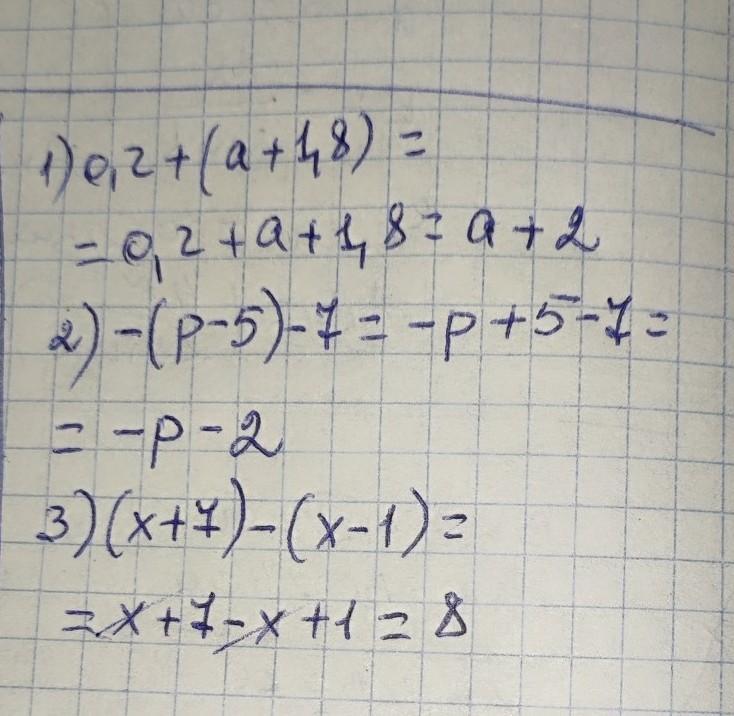 1) 0,2+(a+1,8)=
=0,2+a+1,8=a+2
2) -(p-5)-7=-p+5-7=
=-p-2
3) (x+7)-(x-1)=
=x+7-x+1=8